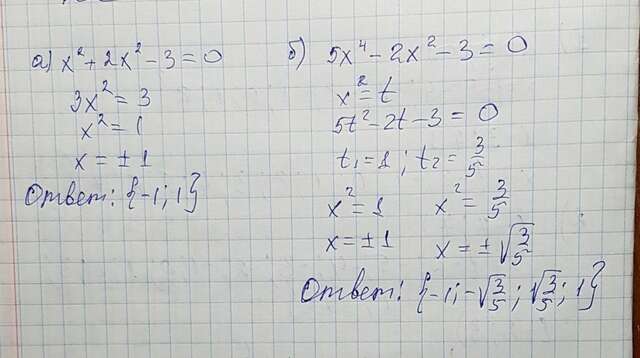 а) x² + 2x² - 3 = 0
3x² = 3
x² = 1
x = ±1
Ответ: {-1; 1}
б) 5x⁴ - 2x² - 3 = 0
x² = t
5t² - 2t - 3 = 0
t₁ = 1; t₂ = 3/5
x² = 1 x² = 3/5
x = ±1 x = ±√(3/5)
Ответ: {-1; -√(3/5); √(3/5); 1}